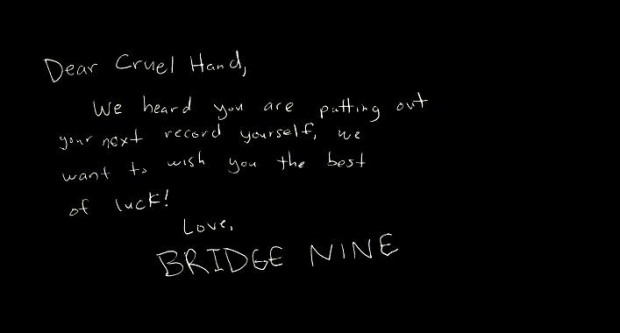 Dear Cruel Hand,
We heard you are putting out
your next record yourself, we
want to wish you the best
of luck!
Love,
BRIDGE NINE